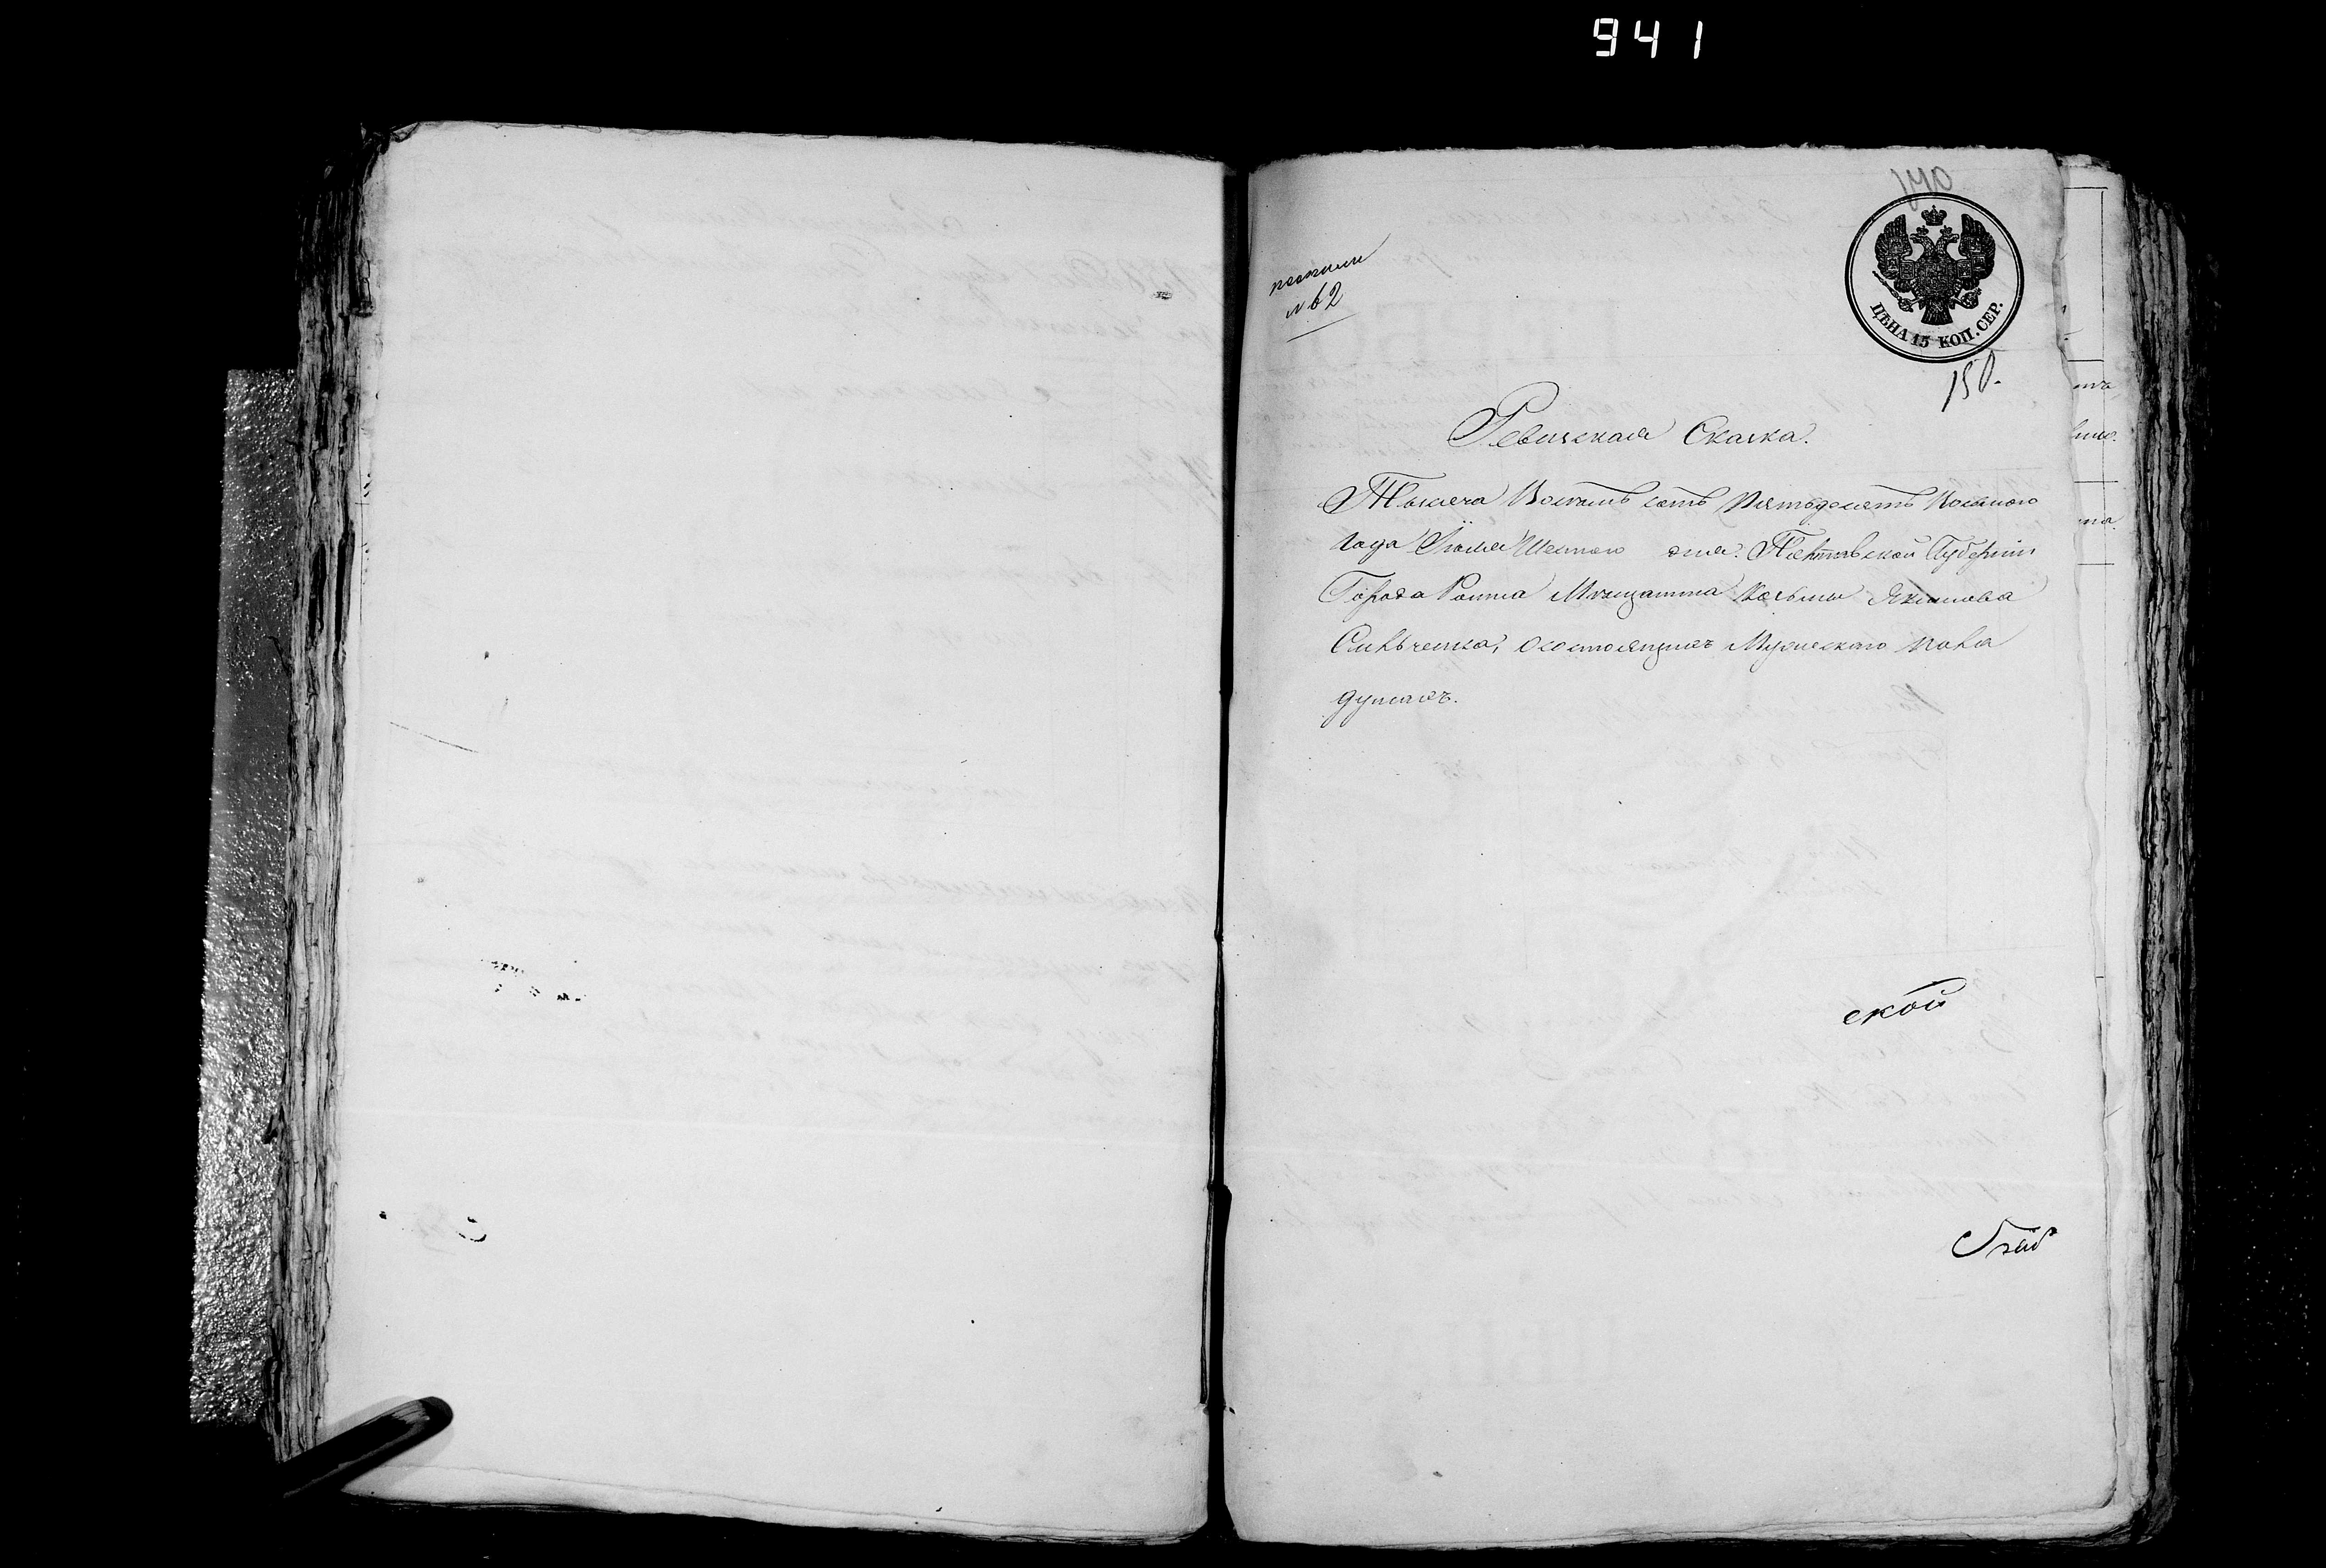 941
140
№ 62
ЦѢНА 15 КОП. СЕР.
150.
Ревизская Сказка.
Тысяча Восемь сотъ Пятьдесятъ Восьмого
года Июня Шестого дня. Полтавской Губернии
Города Ромна Мѣщанина Козьмы Якимова
состоящихъ Мужескаго пола
душахъ.
ской